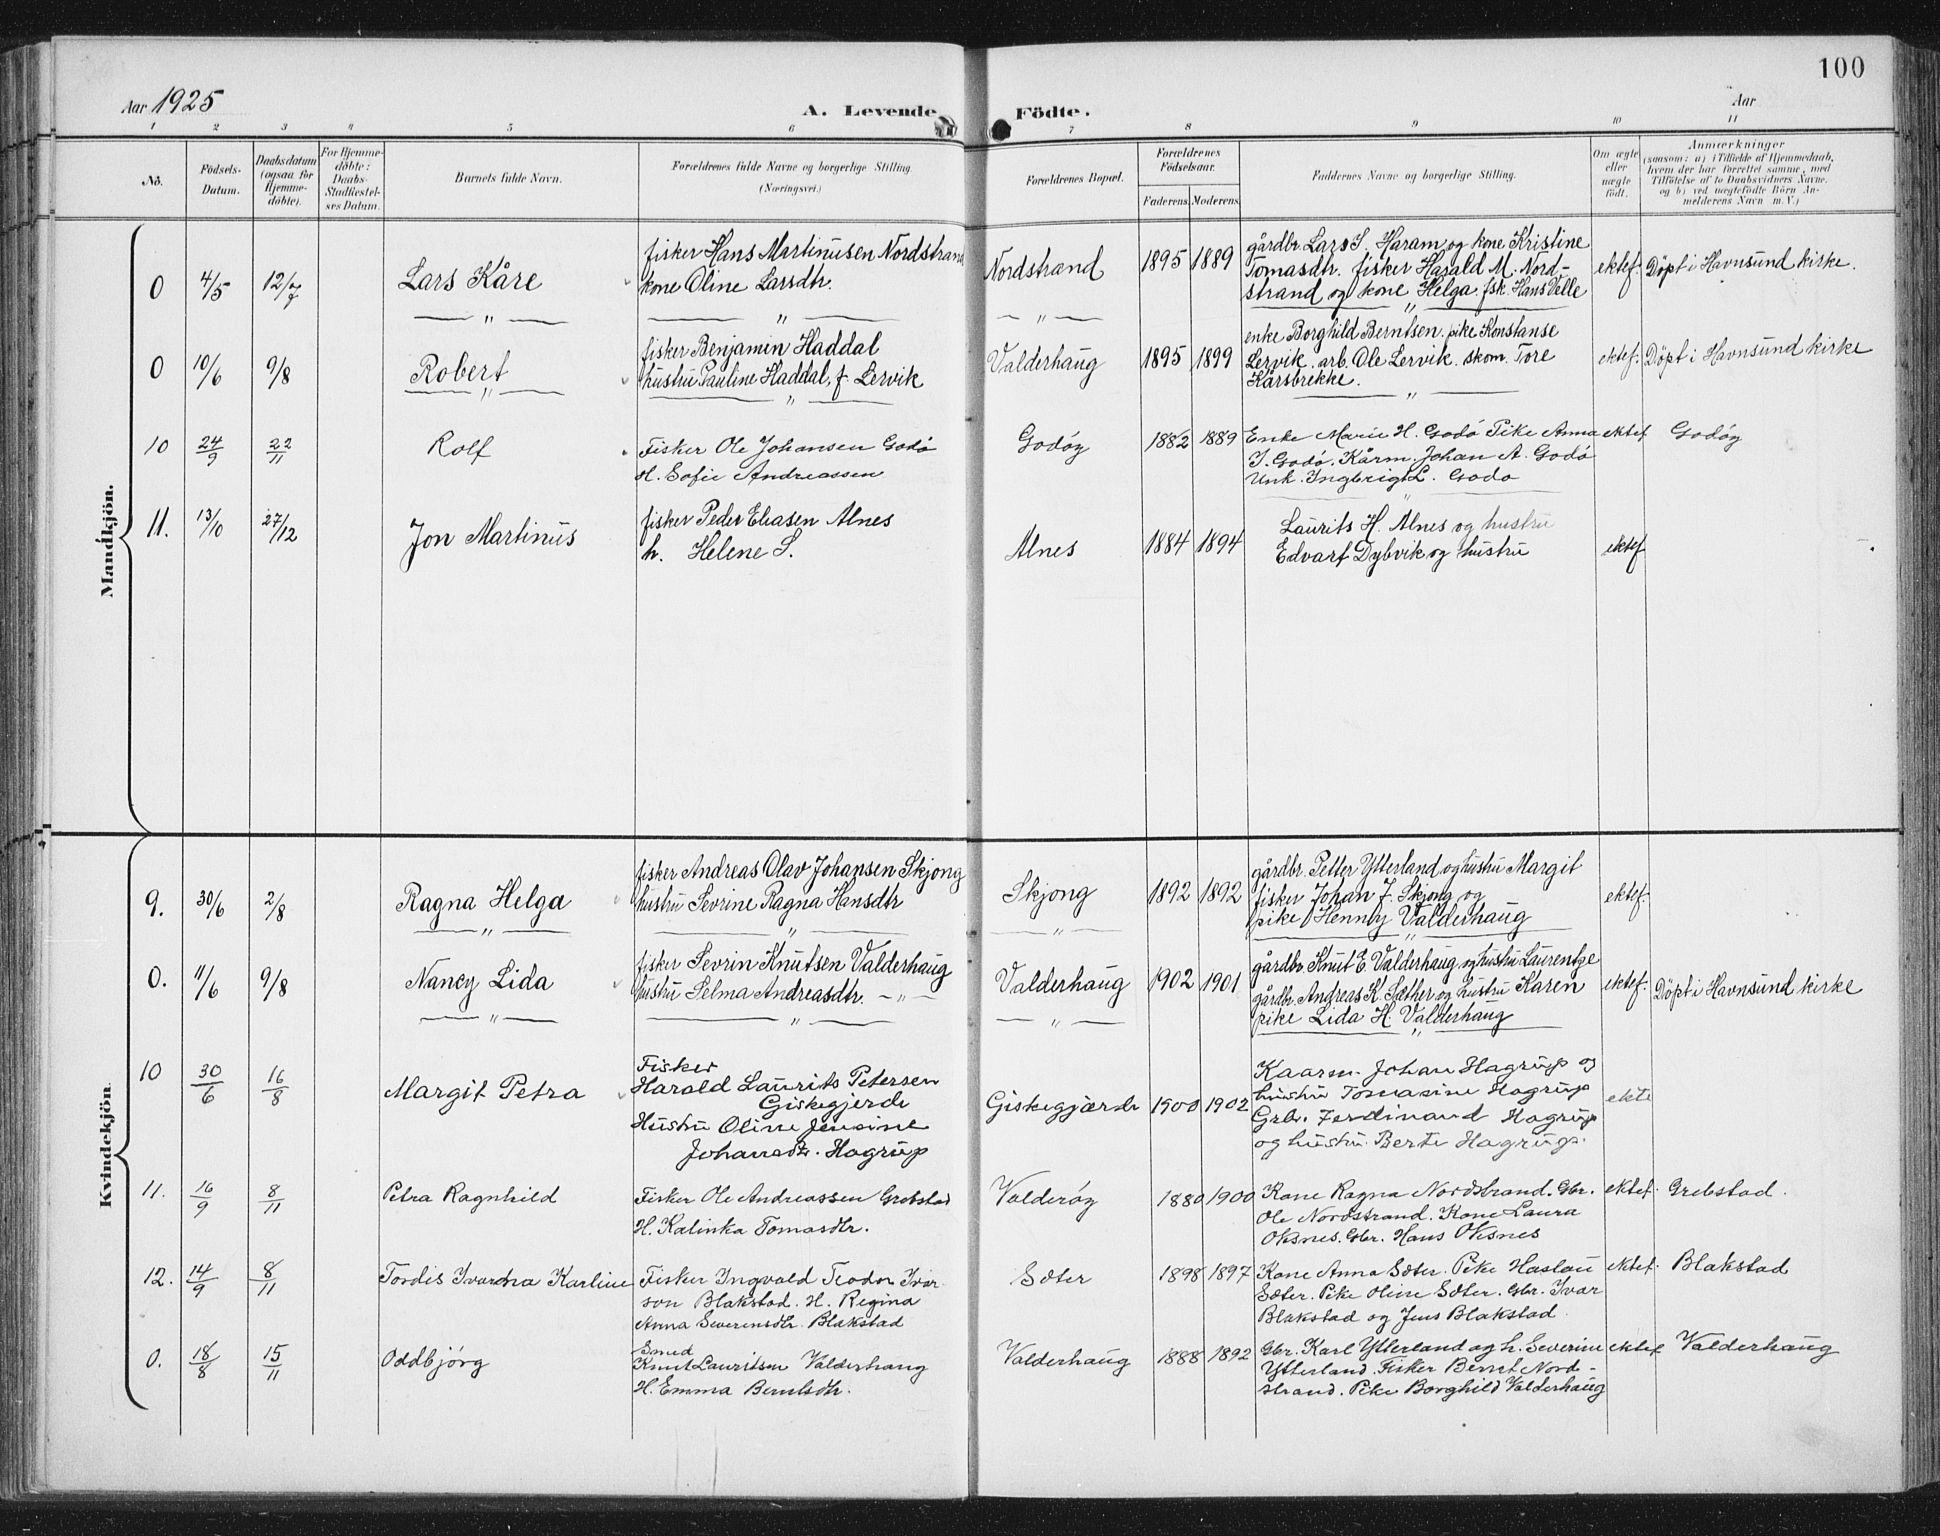 100
Aar 1925
A. Levende Födte.
Aar
1 2 3 4 5 6 7 8 9 10 11
No.
Födsels-
Datum.
Daabsdatum
(ogsaa for
Hjemme-
döbte).
For Hjemme-
döbte:
Daabs-
Stadfæstel-
ses Datum.
Barnets fulde Navn.
Forældrenes fulde Navne og borgerlige Stilling.
(Næringsvei.)
Forældrenes Bopæl.
Forældrenes
Födselsaar.
Faderens. Moderens.
Faddernes Navne og borgerlige Stilling.
Om ægte
eller
uægte
födt.
Anmærkninger
(saasom: a) i Tilfælde af Hjemmedaab,
hvem der har forrettet samme, med
Tilföielse af to Daabsvidners Navne.
og b) ved uægtefödte Börn An-
melderens Navn m. V.)
Mandkjön.
0 4/5 12/7 Lars Kåre
fisker Hans Martinusen Nordstrand
kone Oline Larsdtr.
Nordstrand 1895 1889
gårdbr. Lars I. Haram og kone Kristine
Tomasdtr. fisker Harald M. Nord-
strand og kone Helga. fsk. Hans Valle
ektef. Döpt i Havnsund kirke.
0 10/6 9/8 Robert
fisker Benjamin Haddal
hustru Pauline Haddal, f. Lervik
Valderhaug 1895 1899
enke Borghild Berntsen. pike Konstanse
Lervik. arb. Ole Lervik. skom. Tore
Kårsbrekke.
ektef. Döpt i Havnsund kirke
10 24/9 22/11 Rolf
Fisker Ole Johansen Godö
H. Sofie Andreassen
Godöy 1882 1889
Enke Marie H. Godö Pike Anna
J. Godö. Kårm. Johan A. Godö
Unk. Ingbrigt L. Godö
ektef Godöy
11. 13/10 27/12 Jon Martinus
fisker Peder Eliasen Alnes
h. Helene S.
Alnes 1884 1894
Laurits H. Alnes og hustru
Edvart Dybvik og hustru
ektef
Kvindekjön.
9. 30/6 2/8 Ragna Helga
fisker Andreas Olav Johansen Skjong
hustru Sevrine Ragna Hansdtr
Skjong 1892 1892
gårdbr. Petter Ytterland og hustru Margit
fisker Johan J. Skjong og
pike Henny Valderhaug
ektef.
0. 11/6 9/8 Nancy Lida
fisker Sevrin Knutsen Valderhaug
hustru Selma Andreasdtr. — " —
Valderhaug 1902 1901
gårdbr. Knut E. Valderhaug og hustru Laurentse
gårdbr. Andreas K. Sæther og hustru Karen
pike Lida H. Valderhaug
ektef. Döpt i Havnsund kirke
10 30/6 16/8 Margit Petra
Fisker
Harald Laurits Petersen
Giskegjerde
Hustru Oline Jensine
Johansdtr. Hagrup
Giskegjærde 1900 1902
Kaarm. Johan Hagrup og
hustru Tomasine Hagrup
Grbr. Ferdinand Hagrup
og hustru. Berte Hagrup.
ekte
11. 16/9 8/11 Petra Ragnhild
Fisker Ole Andreassen Grebstad
H. Kalinka Tomasdtr.
Valderöy 1880 1900
Kone Ragna Nordstrand. Gbr.
Ole Nordstrand. Kone Laura
Oksnes. Gbr. Hans Oksnes
ektef. Grebstad.
12. 14/9 8/11 Tordis Ivarda Karline
Fisker Ingvald Teodor Ivar
son Blakstad. H. Regina
Anna Severinsdtr. Blakstad
Sæter 1898 1897
Kone Anna Sæter. Pike
Sæter. Pike Oline Sæter. Gbr. Ivar
Blakstad og Jens Blakstad
ektef. Blakstad
0. 18/8 15/11 Oddbjörg
Smed
Knut Lauritsen Valderhaug
H. Emma Berntsdtr.
Valderhaug 1888 1892
Gbr. Karl Ytterland og h. Severine
Ytterland. Fisker Bernt Nord-
strand. Pike Borghild Valderhaug
ektef Valderhaug